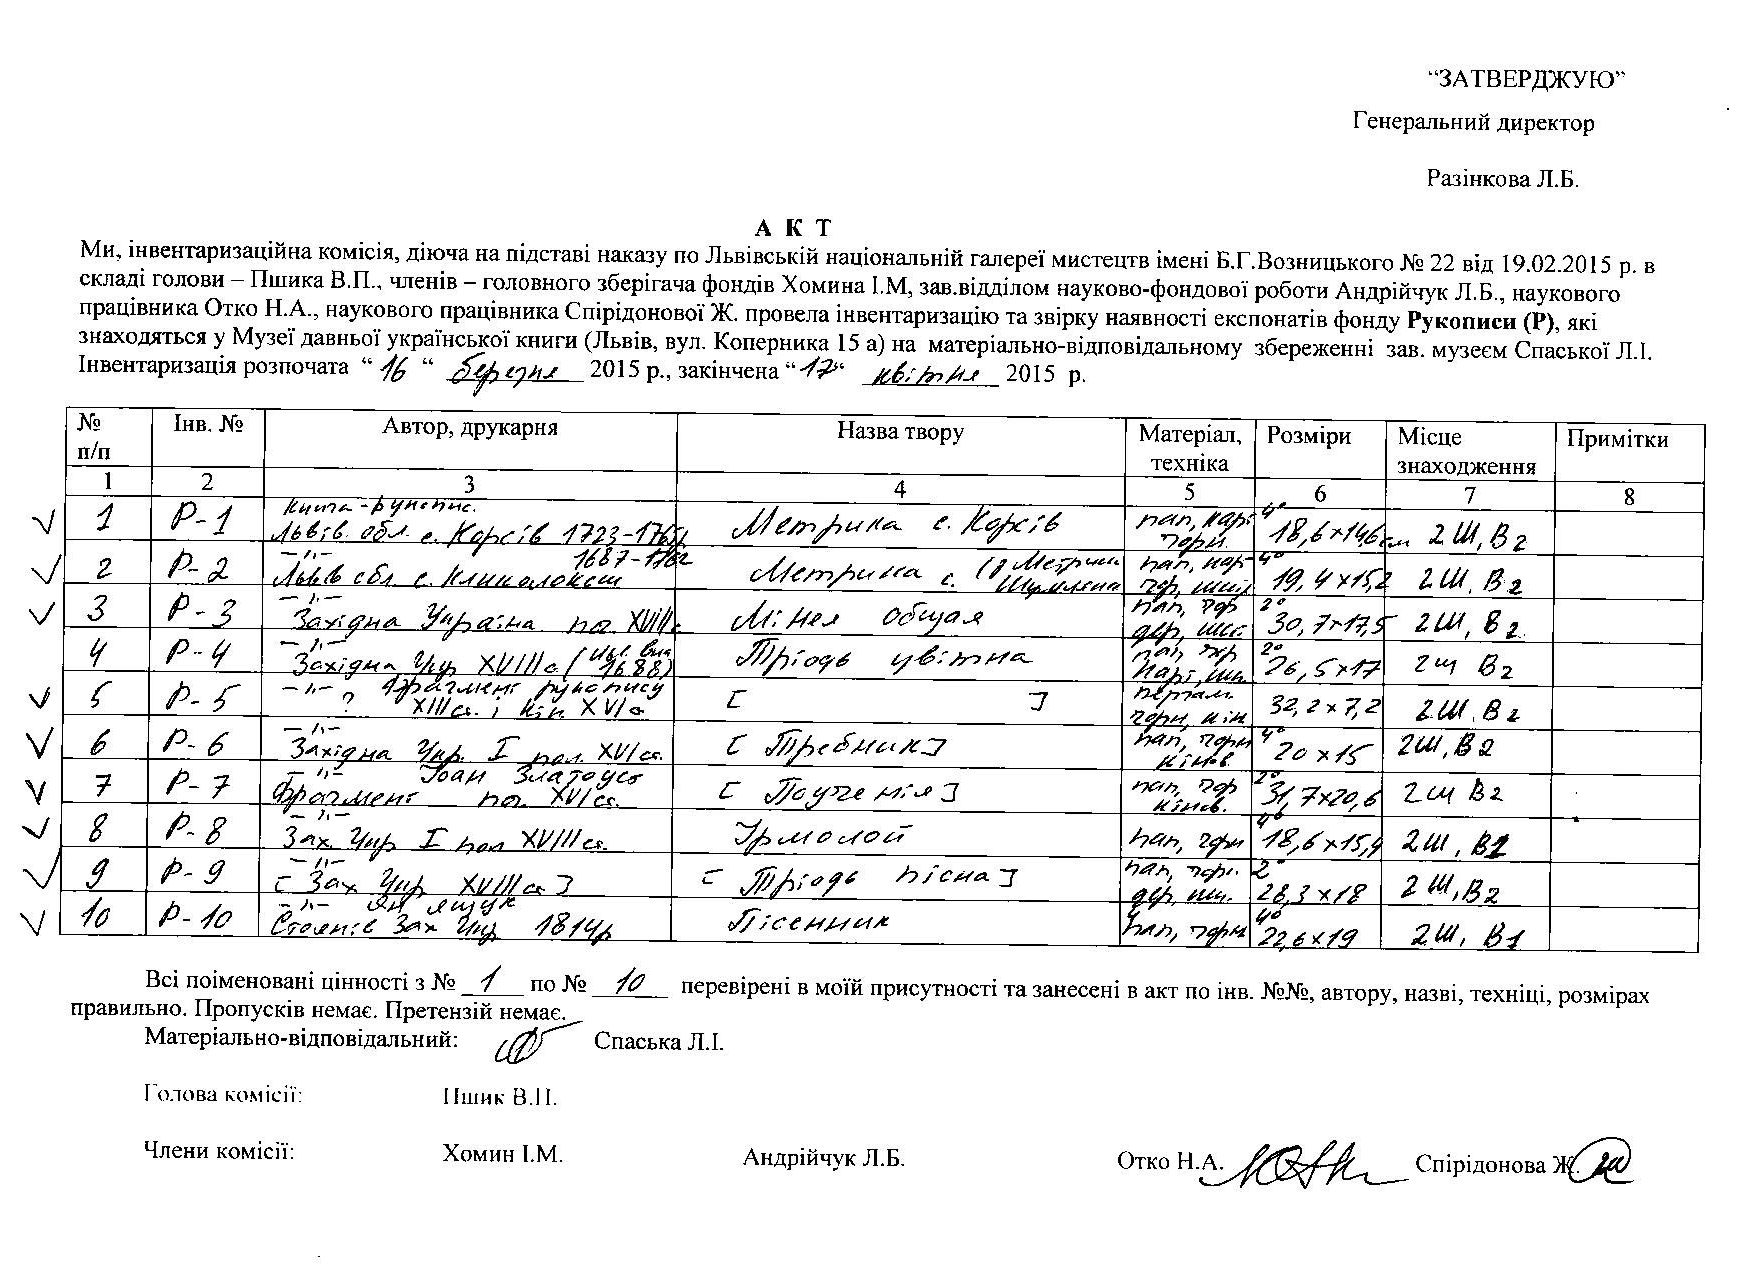 “ЗАТВЕРДЖУЮ”
Генеральний директор
Разінкова Л.Б.
А К Т
Ми, інвентаризаційна комісія, діюча на підставі наказу по Львівській національній галереї мистецтв імені Б.Г.Возницького № 22 від 19.02.2015 р. в
складі голови – Пшика В.П., членів – головного зберігача фондів Хомина І.М, зав.відділом науково-фондової роботи Андрійчук Л.Б., наукового
працівника Отко Н.А., наукового працівника Спірідонової Ж. провела інвентаризацію та звірку наявності експонатів фонду Рукописи (Р), які
знаходяться у Музеї давньої української книги (Львів, вул. Коперника 15 а) на матеріально-відповідальному збереженні зав. музеєм Спаської Л.І.
Інвентаризація розпочата “ 16 “ березня 2015 р., закінчена “17“ квітня 2015 р.
№ п/п Інв. № Автор, друкарня Назва твору Матеріал, техніка Розміри Місце знаходження Примітки
1 2 3 4 5 6 7 8
1 Р-1 Книга-рукопис. Львів. обл. с. Корсів 1723-1765 Метрика с. Корсів пап, чорн. 4° 18,6×14,6 см 2 Ш, В2
2 Р-2 –"– 1687-1762 Львів обл. с. Метрика с. пап, 4° 19,4×15,2 2Ш, В2
3 Р-3 –"– Західна Україна поч. XVIII с Мінея общая пап, чор 2° 30,7×17,5 2Ш, В2
4 Р-4 –"– Західна Укр XVIIIс ( 1688) Тріодь цвітна пап 2° 26,5×17 2ш В2
5 Р-5 –"– ? Фрагмент рукопису XIIIст. і кін. XVIст [ ] пергам. чорн, кін. 32,2×7,2 2Ш, В2
6 Р-6 –"– Західна Укр. I пол. XVIст. [Требник] пап, чорн кінов. 4° 20×15 2Ш, В2
7 Р-7 –"– Іоан Златоуст Фрагмент поч. XVIст. [Поученія] пап, чор кінов. 2° 31,7×20,6 2ш В2
8 Р-8 –"– Зах. Укр I пол XVIIIст. Ірмолой пап, чорн 4° 18,6×15,9 2Ш, В2
9 Р-9 –"– [Зах Укр XVIIIст] [Тріодь пісна] пап, чорн. 2° 28,3×18 2Ш, В2
10 Р-10 –"– Ян Ящук Стоянів Зах Укр 1814р Пісенник пап, чорн 4° 22,6×19 2Ш, В1
Всі поіменовані цінності з № 1 по № 10 перевірені в моїй присутності та занесені в акт по інв. №№, автору, назві, техніці, розмірах
правильно. Пропусків немає. Претензій немає.
Матеріально-відповідальний: Спаська Л.І.
Голова комісії: Пшик В.П.
Члени комісії: Хомин І.М. Андрійчук Л.Б. Отко Н.А. Спірідонова Ж.